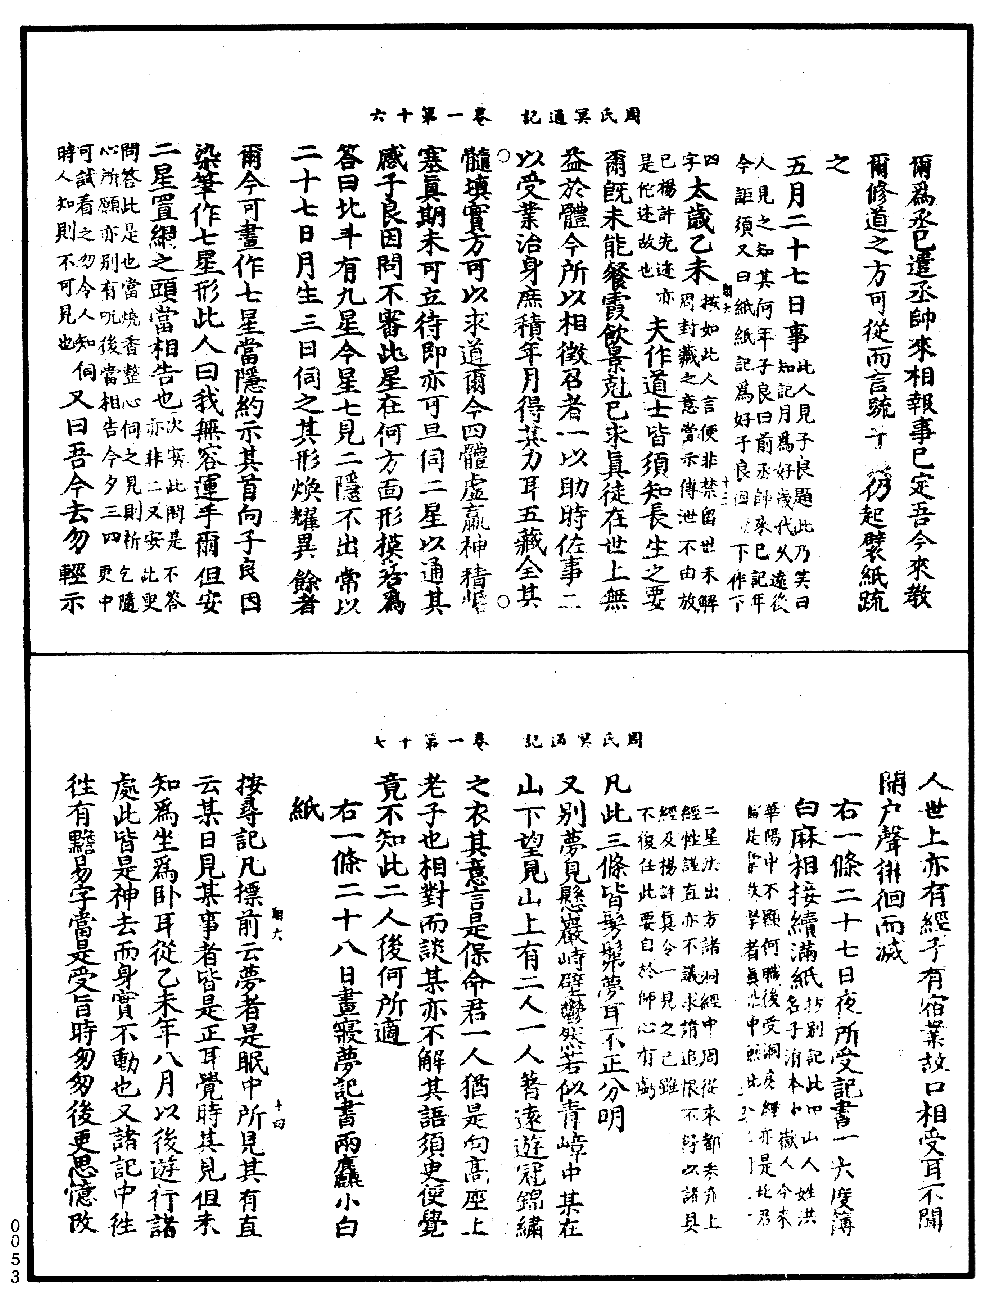 周氏冥通記　卷一第十六
爾為丞已遣丞帥來相報事已定吾今來教
爾修道之方可從而言疏　仍起襞紙疏
之
五月二十七日事
此人見子良題此乃笑曰
知記月為好歲代久遠後
人見之知其何年子良曰前丞帥來已記年
今詎須又曰紙紙記為好子良　下作下
四
字
太歲乙未
此人言便非禁留世未解
封藏之意嘗示傳泄不由放
已楊許先達亦
是佗述故也
夫作道士皆須知長生之要
爾既未能餐霞飲景剋已求真徒在世上無
益於體今所以相徵召者一以助時佐事二
以受業治身庶積年月得其力耳五藏全其
髓填實方可以求道爾今四體虛羸神精
塞真期未可立待即亦可旦伺二星以通其
感子良因問不審此星在何方面形模若為
答曰北斗有九星今星七見二隱不出常以
二十七日月生三日伺之其形煥耀異餘者
爾今可畫作七星當隱約示其首向子良因
染筆作七星形此人曰我無容運手爾但安
二星置綱之頭當相告也
次安此問是不答
亦非二又安此更
問答此是也當燒香整心伺之見則祈乞隨
心所願亦別有呪後當相告今夕三四更中
可試看之勿令人知伺
時人知則不可見也
又曰吾今去勿輕示
周氏冥通記　卷一第十七
人世上亦有經子有宿業故口相受耳不聞
開户聲徘徊而滅
右一條二十七日夜所受記書一大度簿
白麻相接續滿紙
別記此四山人姓洪
名子涓本　嶽人今來
華陽中不顯何職後受洞房經亦是此君
二星法出方諸洞經中周從來都未亦上
經性謹直亦不議求請追恨不得以諸具
經及楊許真令一見之已雖
不復任此要自於師心有虧
凡此三條皆髣髴夢耳不正分明
又別夢見懸巖峙壁鬱然若似青嶂中某在
山下望見山上有二人一人著遠遊冠錦繡
之衣其意言是保命君一人猶是向高座上
老子也相對而談某亦不解其語須臾便覺
竟不知此二人後何所適
右一條二十八日晝寢夢記書兩麤小白
紙
按尋記凡標前云夢者是眠中所見其有直
云某日見某事者皆是正耳覺時其見但未
知為坐為卧耳從乙未年八月以後遊行諸
處此皆是神去而身實不動也又諸記中往
往有黵易字當是受旨時匆匆後更思憶改
十四
0053